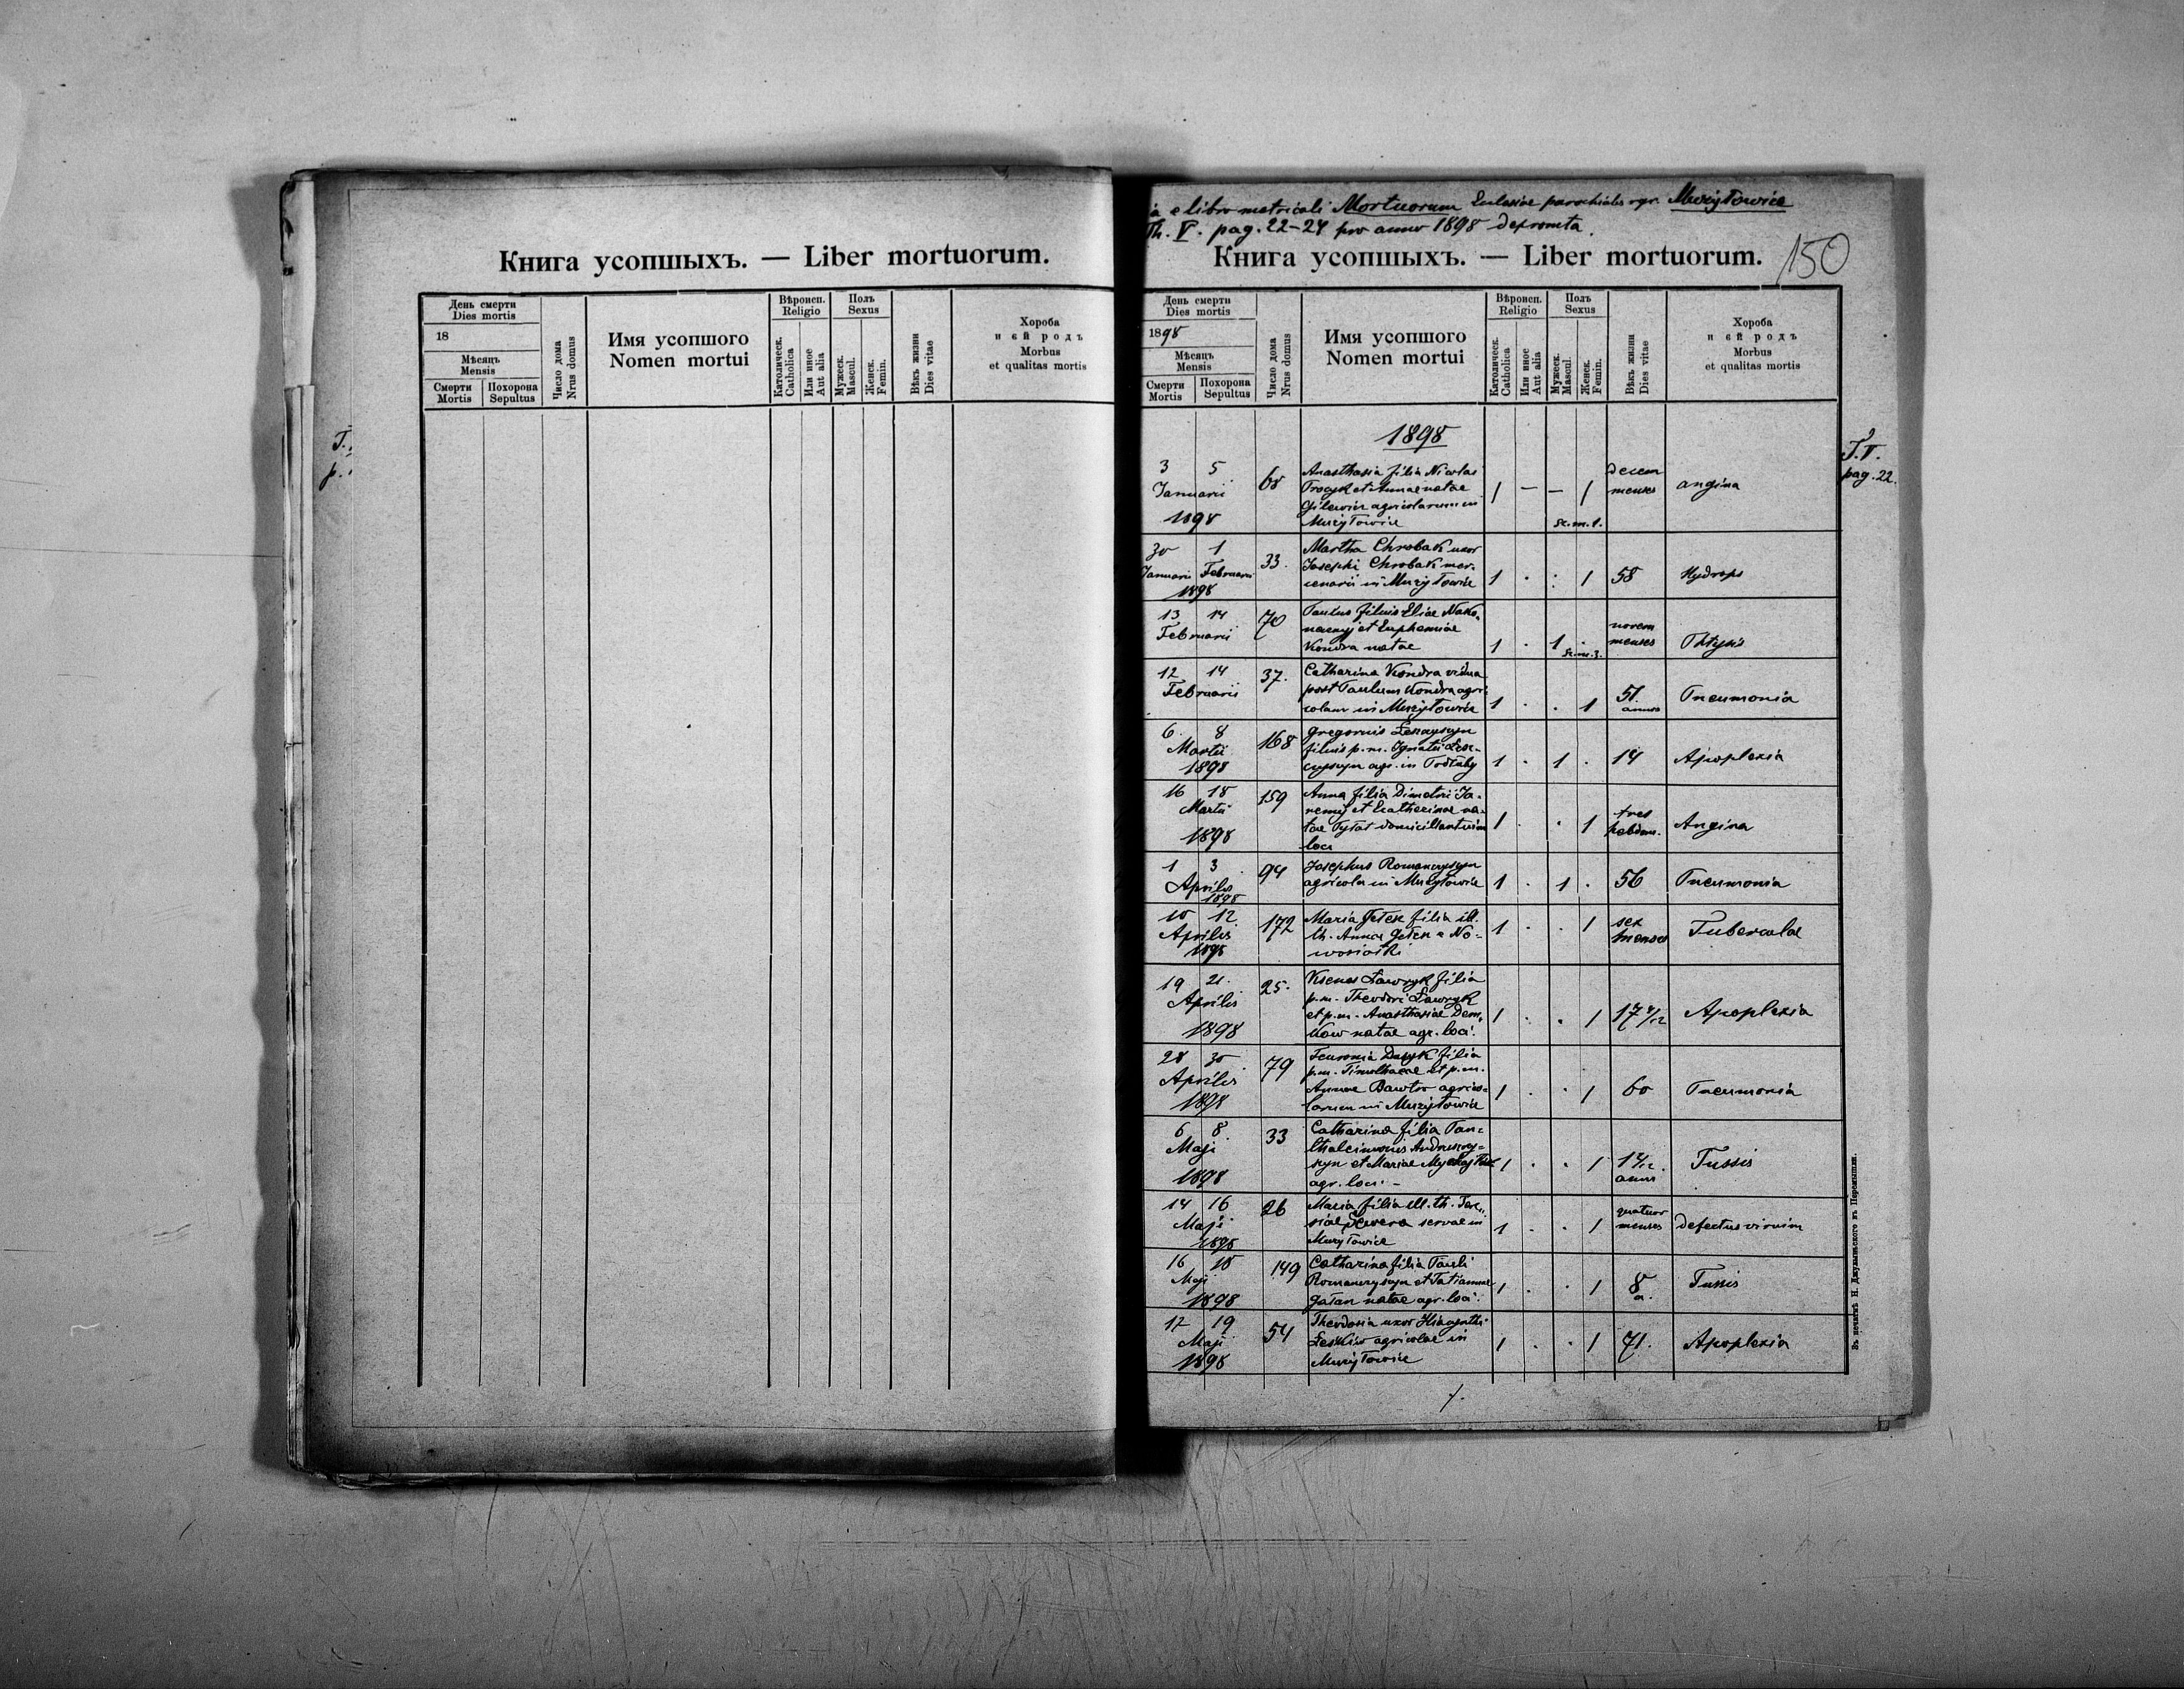 Книга усопшыхъ. — Liber mortuorum.
День смерти
Dies mortis
18
Мѣсяцъ
Mensis
Смерти
Mortis
Похорона
Sepultus
Число дома
Nrus domus
Имя усопшого
Nomen mortui
Вѣроисп.
Religio
Католическ.
Catholica
Или иное
Aut alia
Полъ
Sexus
Мужеск.
Mascul.
Женск.
Femin.
Вѣкъ жизни
Dies vitae
Хороба
и єй родъ
Morbus
et qualitas mortis
T.
p.
e libro metricali Mortuorum Ecclesiae parochialis Mużyłowice
Th. V. pag. 22-24 pro anno 1898 deprompta.
Книга усопшыхъ. — Liber mortuorum.
150
День смерти
Dies mortis
1898
Мѣсяцъ
Mensis
Смерти
Mortis
Похорона
Sepultus
Число дома
Nrus domus
Имя усопшого
Nomen mortui
Вѣроисп.
Religio
Католическ.
Catholica
Или иное
Aut alia
Полъ
Sexus
Мужеск.
Mascul.
Женск.
Femin.
Вѣкъ жизни
Dies vitae
Хороба
и єй родъ
Morbus
et qualitas mortis
1898
T. V.
pag. 22.
3 5
Januarii
1898
Anasthasia filia Nicolai
et Annae natae
Gilewicz agricolarum in
Mużyłowice
1 — — 1
decem
menses
angina
30 1
Januarii Februarii
1898
33.
Martha Chrobak uxor
Josephi Chrobak mer-
cenarii in Mużyłowice
1 . : 1
58
Hydrops
13 14
Februarii
70
Paulus filius Eliae Nako-
necznyj et Euphemiae
Kondra natae
1 . 1 .
novem
menses
Phtysis
12 14
Februarii
37.
Catharina Kondra vidua
post Paulum Kondra agri-
colam in Mużyłowice
1 . . 1
51.
annos
Pneumonia
6. 8
Martii
1898
168
Gregorius
filius p.m. Ignatii
agr. in Podłuby
1 . 1 .
14
Apoplexia
16 18
Martii
1898
159
Anna filia Dimetrii Ja-
remij et Catherinae na-
tae domiciliantium
loci
1 . . 1
tres
hebdom.
Angina
1 3
Aprilis
1898
94
Josephus Romanczyszyn
agricola in Mużyłowice
1 . 1 .
56
Pneumonia
10 12
Aprilis
1898
172
Maria filia ill.
th. Annae e No-
wosiółki
1 . . 1
sex
menses
Tuberculae
19 21.
Aprilis
1898
25.
Ławryk filia
p.m. Theodori Ławryk
et p.m. Anasthasiae Dem-
kow natae agr. loci.
1 . . 1
Apoplexia
28 30
Aprilis
1898
79
filia
p.m. et p.m.
Annae agrico-
larum in Mużyłowice
1 . . 1
60
Pneumonia
6 8
Maji
1898
33
Catharina filia Pan-
thaleimonis Andruszczy-
szyn et Mariae
agr. loci. -
1 . . 1
Tussis
14 16
Maji
1898
26
Maria filia ill. th.
servae in
Mużyłowice
1 . . 1
quatuor
menses
defectus virium
16 18
Maji
1898
149
Catharina filia Pauli
Romanczyszyn et Tatiannae
Gałan natae agr. loci.
1 . . 1
8
a.
Tussis
17 19
Maji
1898
54
Theodosia uxor
agricolae in
Mużyłowice
1 . . 1
71.
Apoplexia
Въ печатнѣ И. Джулыньского въ Перемышли.